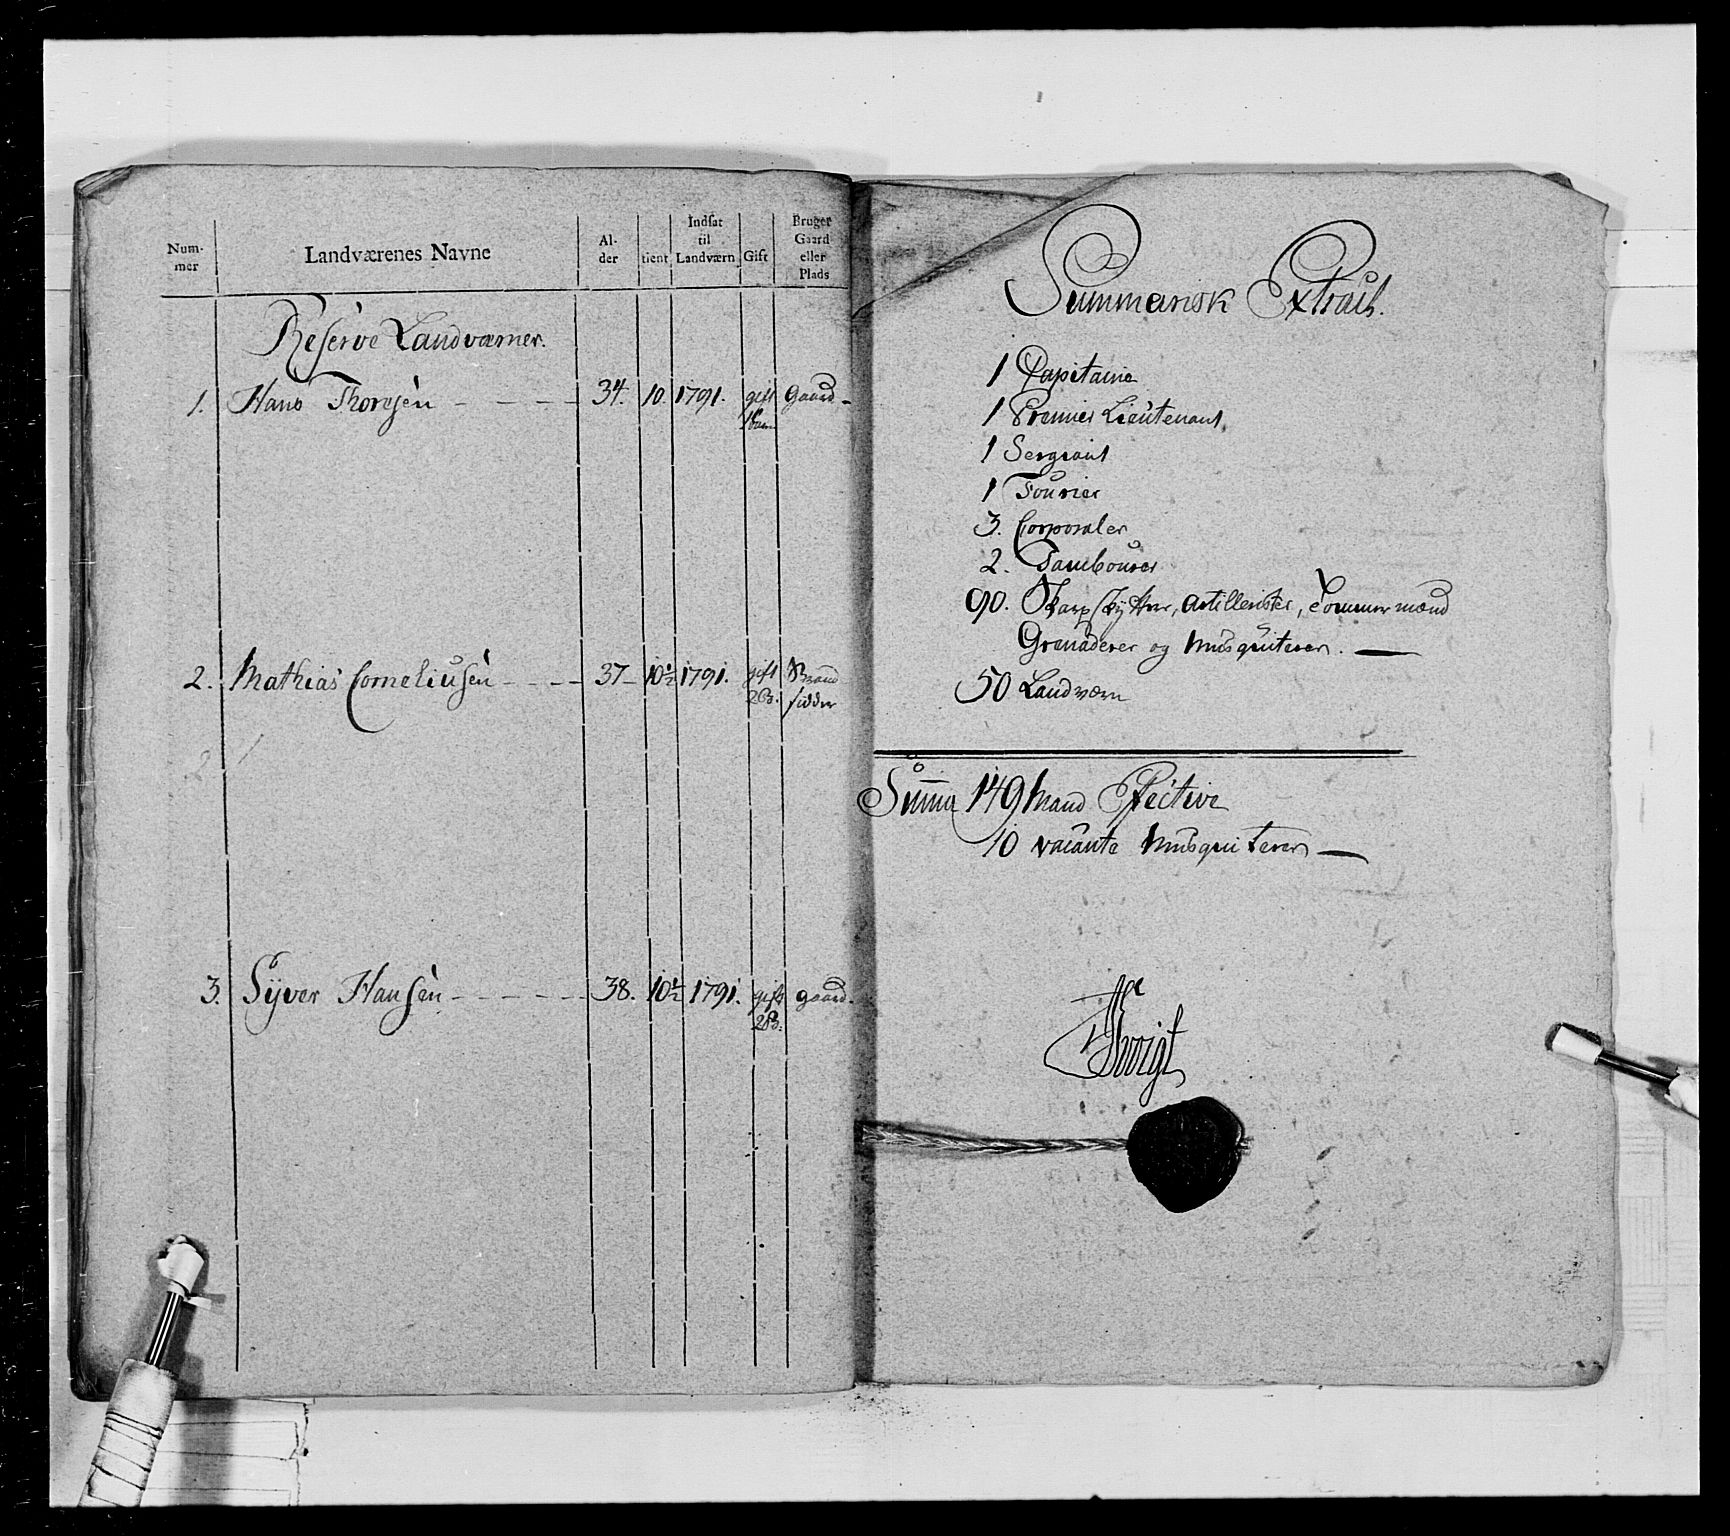 Num-
mer
Landværenes Navne
Al-
der
tient
Indsat
til
Landværn
Gift
Bruger
Gaard
eller
Plads
Reserve Landværner.
1. Hans Thoresen 34. 10. 1791. gift Gaard
1 Barn
2. Mathias Corneliusen 37 10½ 1791. gift Strand
2 B. sidder
3. Syver Hansen 38. 10½ 1791. gift gaard.
2 B.
Summarisk Extract.
1 Capitaine
1 Premier Lieutenant
1 Sergiant
1 Fourier
3. Corporaler
2. Tambourer
90. Skarpskytter, Artillerister, Tømmermænd
Grenaderer og Musquiterer.
50 Landværn
Suma 149 Mand Effective
10 vacante Musquiterer
Voigt